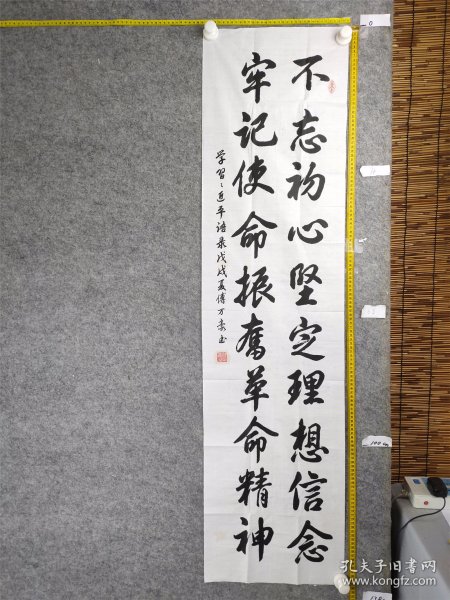 不忘初心坚定理想信念
牢记使命振奋革命精神
学习习近平语录戊戌夏傅万
孔夫子旧书网
www.kongfz.com